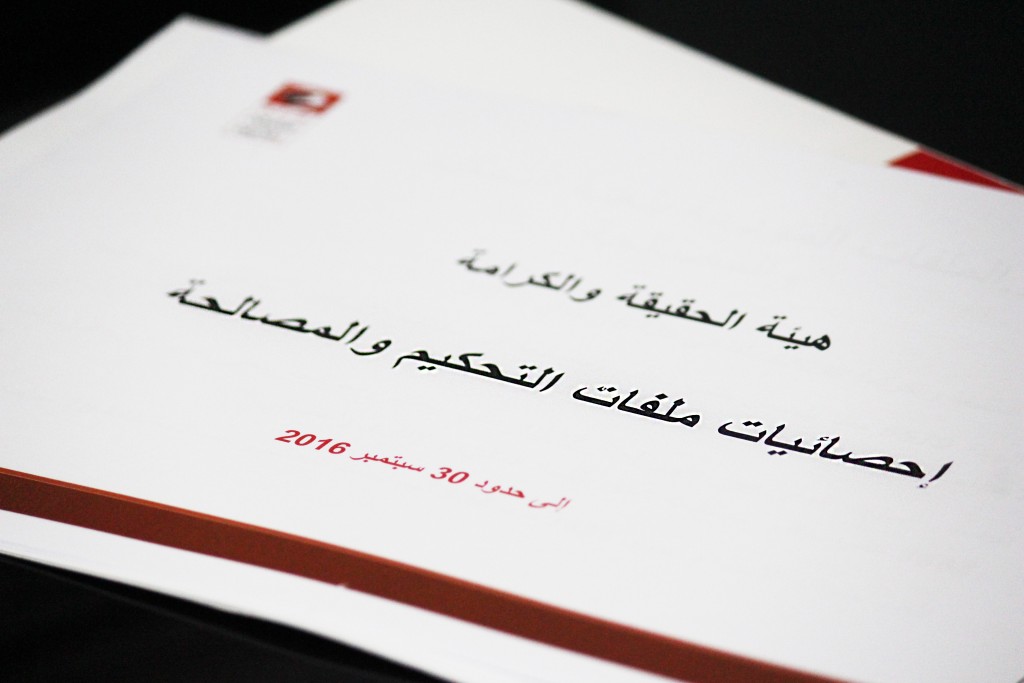 هيئة الحقيقة والكرامة
إحصائيات ملفات التحكيم والمصالحة
إلى حدود 30 سبتمبر 2016